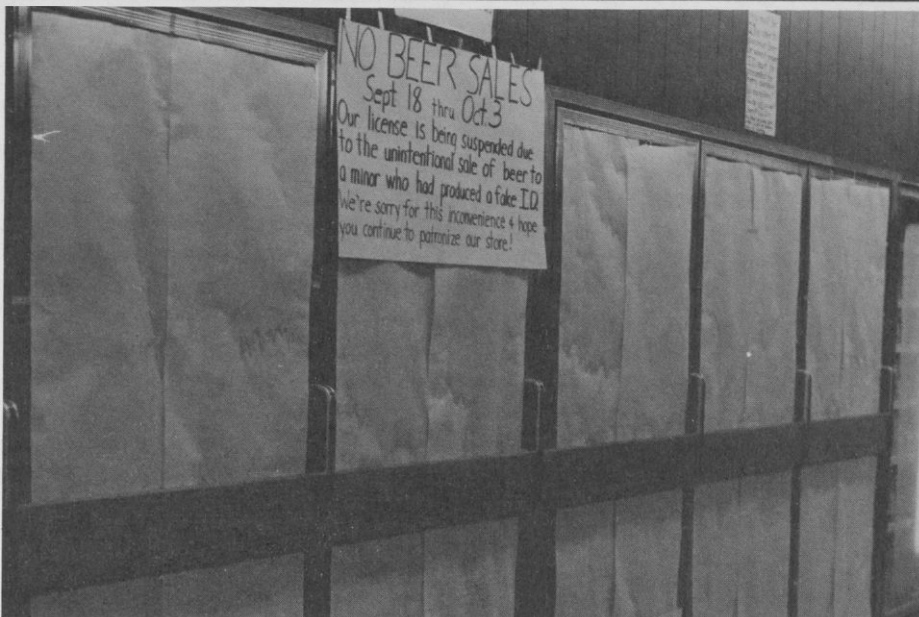 NO BEER SALES
Sept 18 thru Oct. 3
Our license is being suspended due
to the unintentional sale of beer to
a minor who had produced a fake I.D.
We're sorry for this inconvenience & hope
you continue to patronize our store!